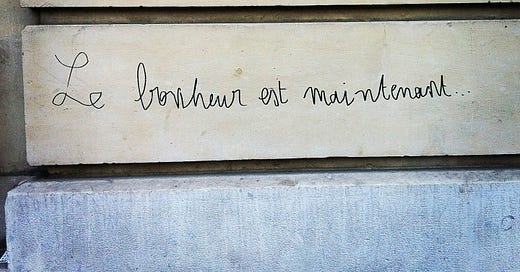 Le bonheur est maintenant...